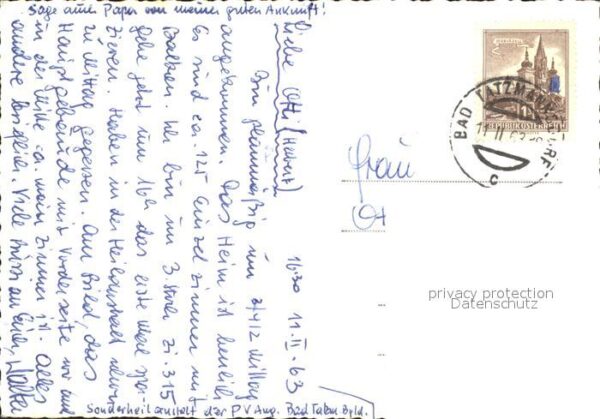 Sage auch Papa von meiner guten Ankunft!
16.30 11. II. 63
Liebe Otti (Helmut)
Bin planmäßig um 3/4 12 Mittag
angekommen. Das Heim ist herrlich
Es sind ca. 125 Einzelzimmer mit
Balkon. Ich bin im 3 Stock Zi. 315
gehe jetzt um 16h das erste mal spa-
zieren. Haben in der Heilanstalt schon
zu Mittag gegessen. Am Bild, das
Hauptgebäude mit Vorderseite wo
in der Mitte ca. mein Zimmer ist. Alles
andere Viele
Walter
Sonderheilanstalt der PV Ang. Bad Tatzm. Bgld.
Frau
Ot
REPUBLIK ÖSTERREICH
BAD TATZMANNSDORF
11 II 63
c
privacy protection
Datenschutz